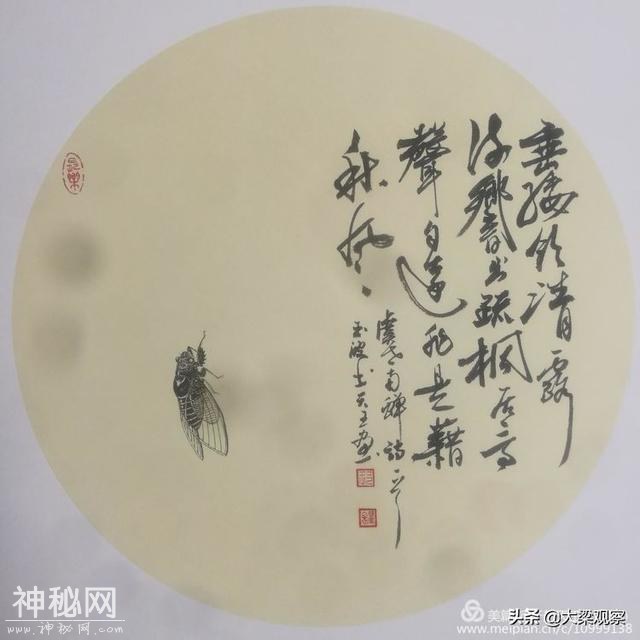 垂緌飲清露
流響出疏桐居高
聲自遠非是藉
秋風
虞世南蟬詩一首
長樂
神秘网
美篇
头条 @大梁观察
www.meipian.cn/c/10999138